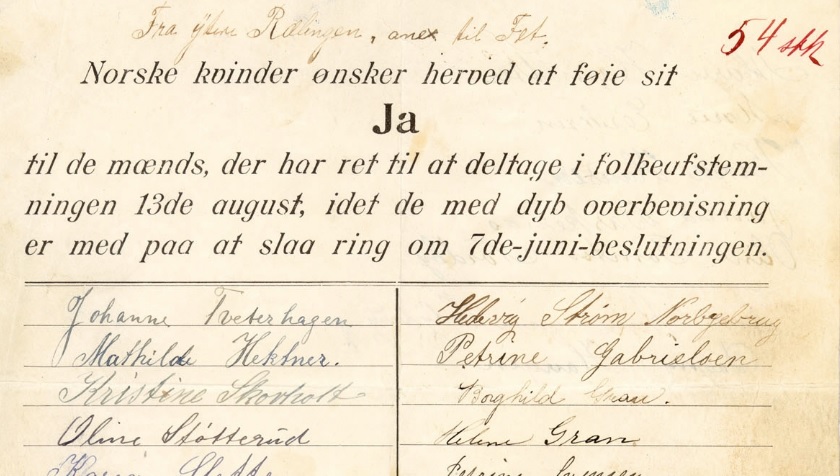 Fra ytre Rælingen, anex til Fet.
54 stk
Norske kvinder ønsker herved at føie sit
Ja
til de mænds, der har ret til at deltage i folkeafstem-
ningen 13de august, idet de med dyb overbevisning
er med paa at slaa ring om 7de-juni-beslutningen.
Johanne Tveterhagen
Mathilde Hektner.
Kristine Skovholt
Oline Støtterud
Hedevig Strøm
Petrine
Borghild Gran.
Helene Gran
Petrine